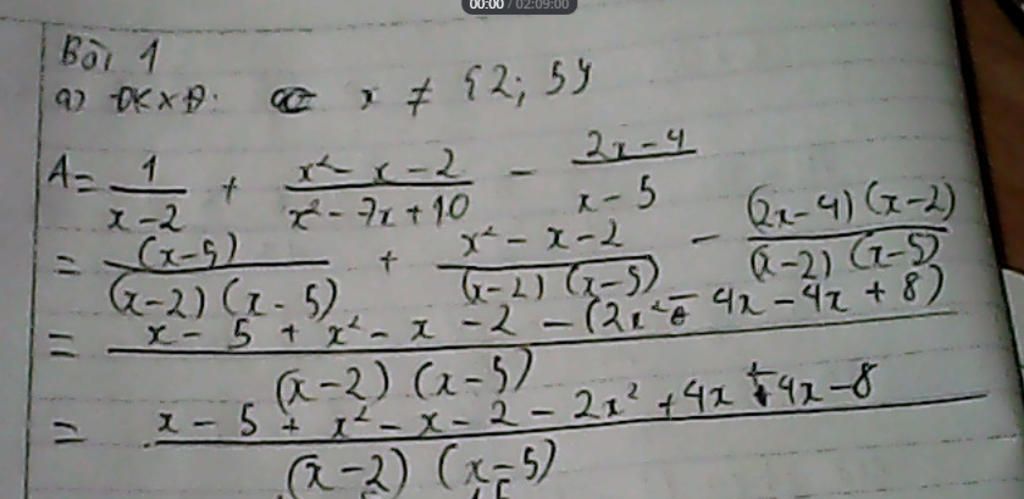 00:00 / 02:09:00
Bài 1
a) ĐKXĐ: x ≠ {2; 5}
A = 1/(x-2) + (x² - x - 2)/(x² - 7x + 10) - (2x - 4)/(x - 5)
= (x-5)/((x-2)(x-5)) + (x² - x - 2)/((x-2)(x-5)) - ((2x-4)(x-2))/((x-2)(x-5))
= (x - 5 + x² - x - 2 - (2x² - 4x - 4x + 8))/((x-2)(x-5))
= (x - 5 + x² - x - 2 - 2x² + 4x + 4x - 8)/((x-2)(x-5))